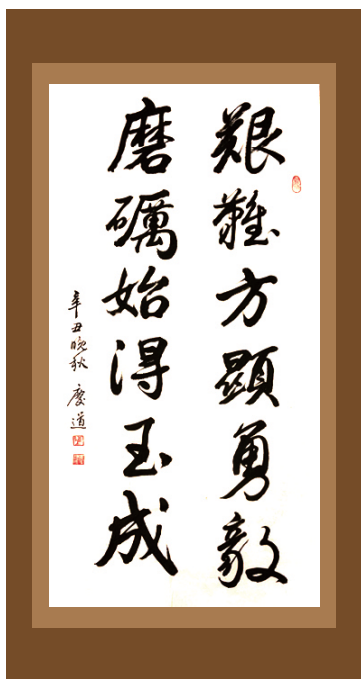 艱難方顯勇毅
磨礪始得玉成
辛丑晚秋 慶道